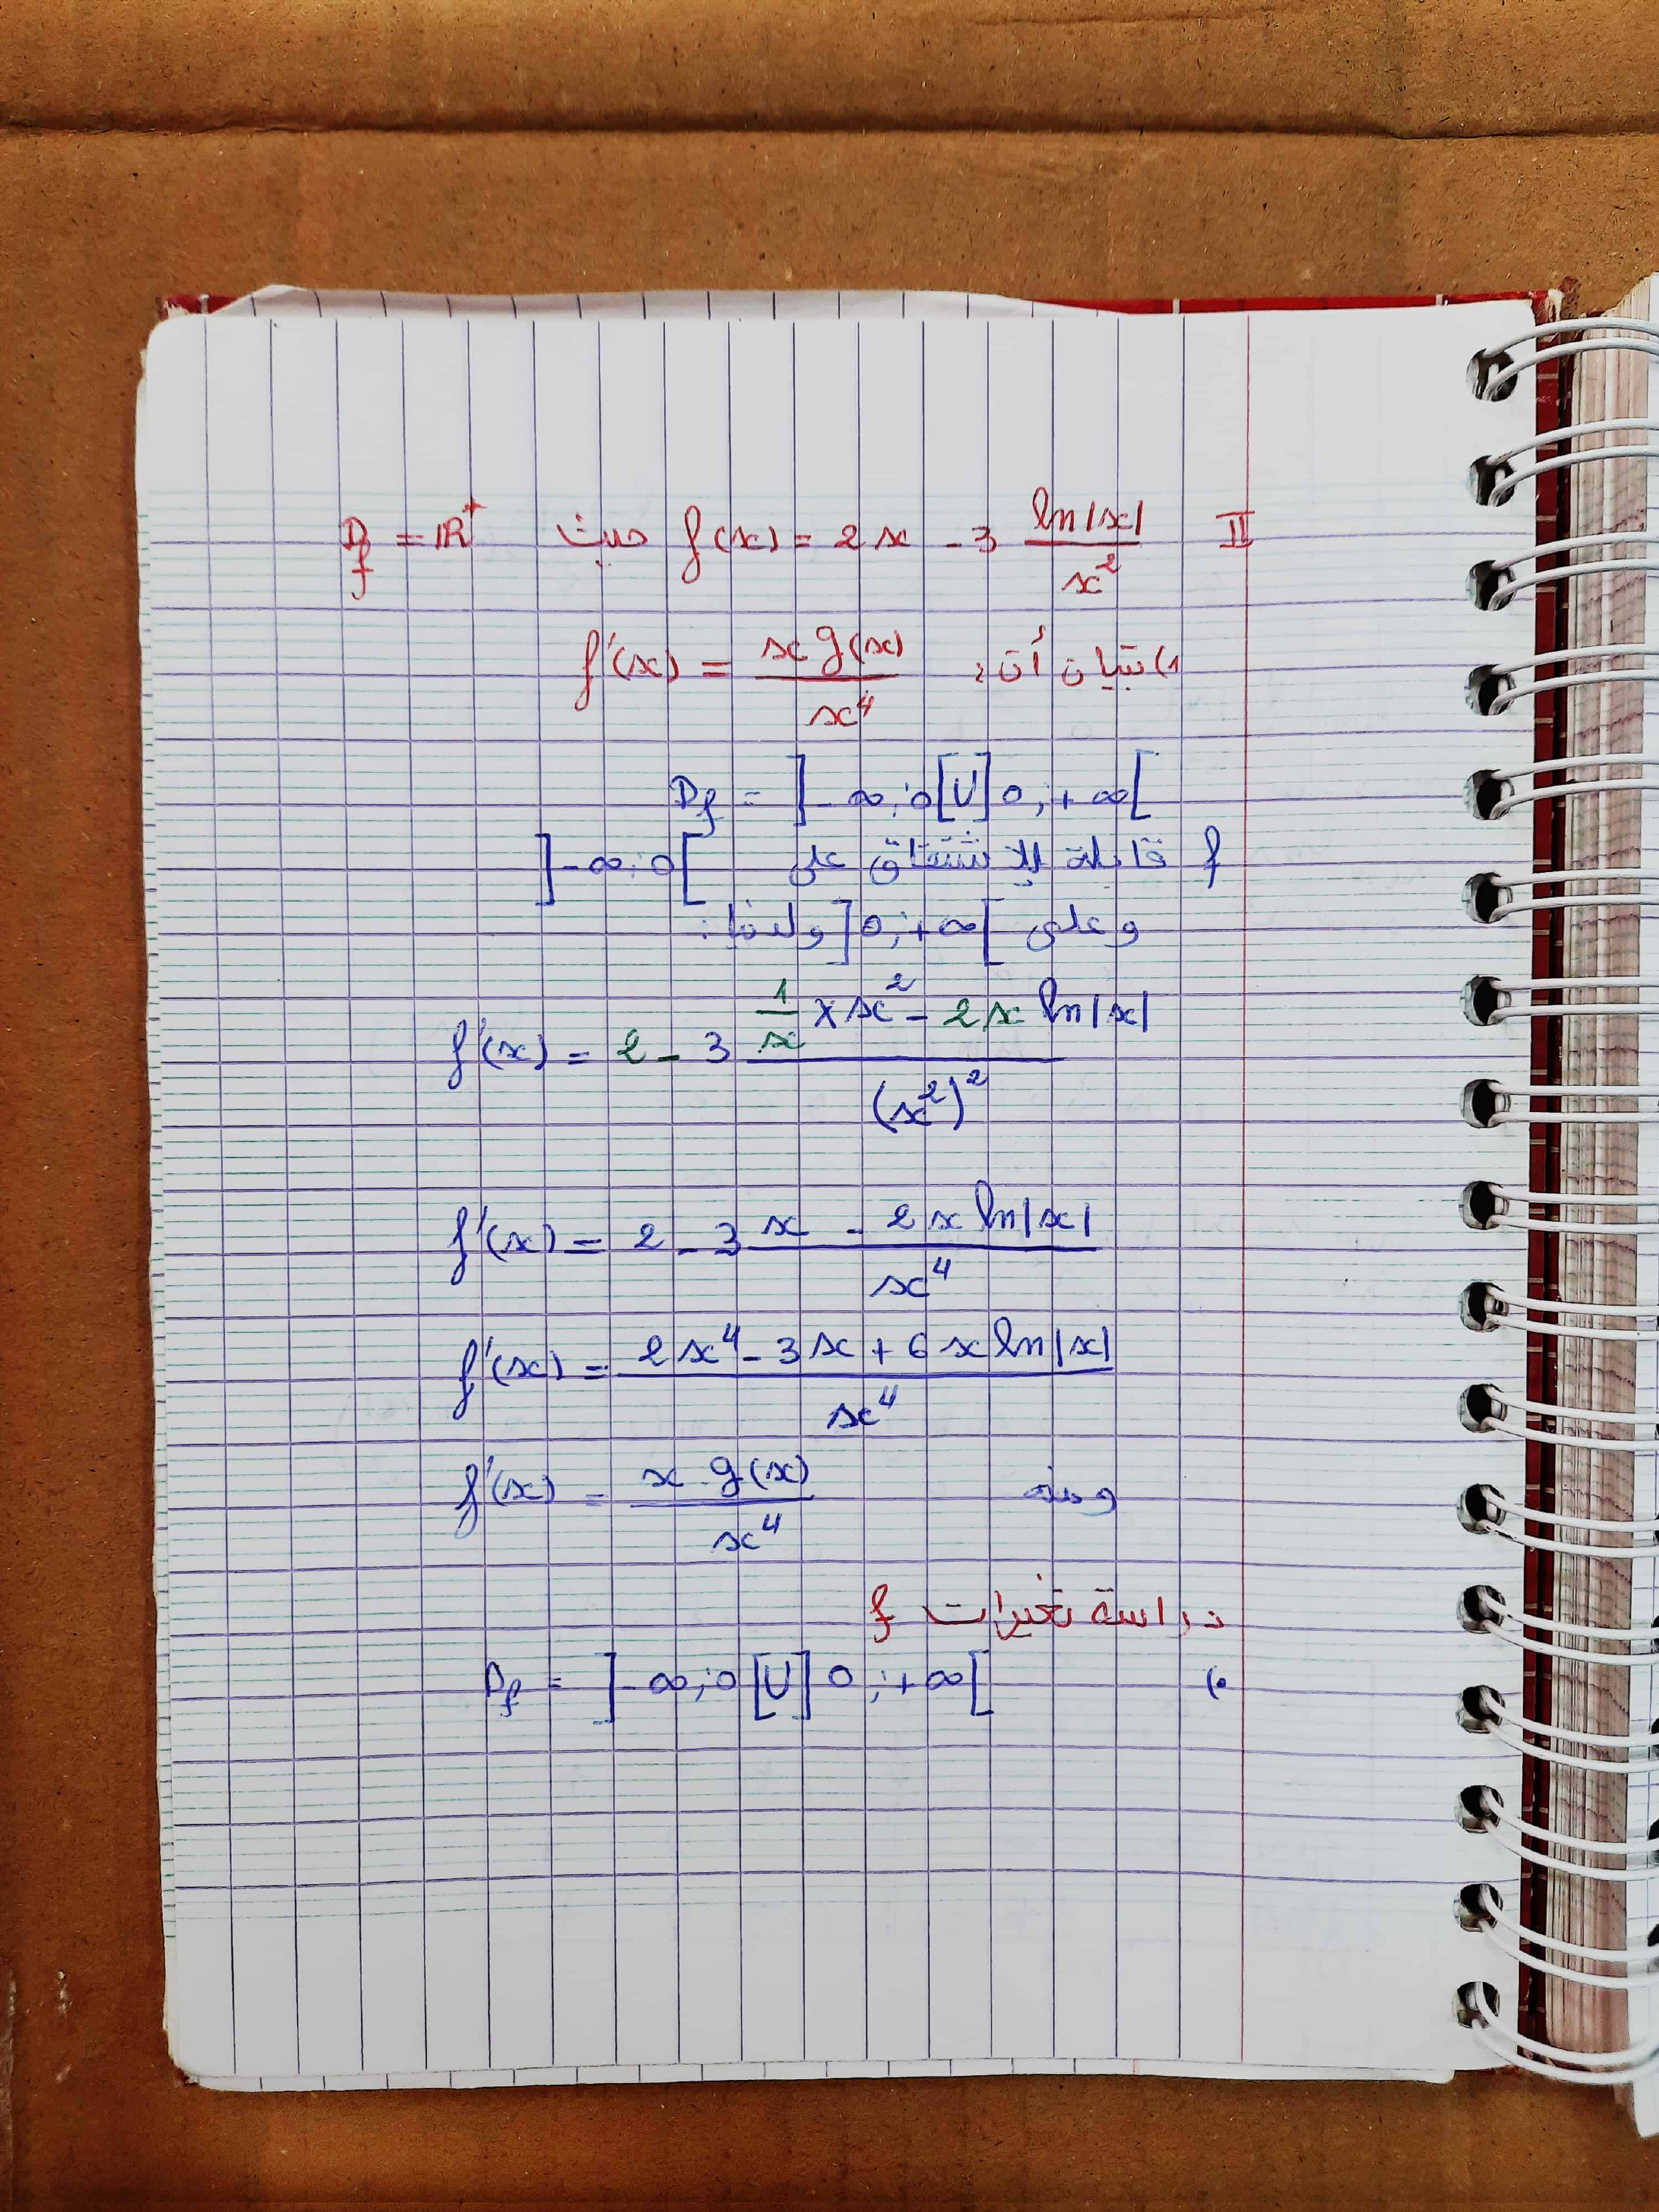 II f(x) = 2x - 3 ln|x| / x² حيث D_f = ℝ⁺
1) تبيان أن: f'(x) = x g(x) / x⁴
D_f = ]-∞; 0[ U ]0; +∞[
f قابلة للاشتقاق على ]-∞; 0[
وعلى ]0; +∞[ ولدينا:
f'(x) = 2 - 3 (1/x × x² - 2x ln|x|) / (x²)²
f'(x) = 2 - 3 (x - 2x ln|x|) / x⁴
f'(x) = (2x⁴ - 3x + 6x ln|x|) / x⁴
ومنه f'(x) = x g(x) / x⁴
دراسة تغيرات f
•) D_f = ]-∞; 0[ U ]0; +∞[